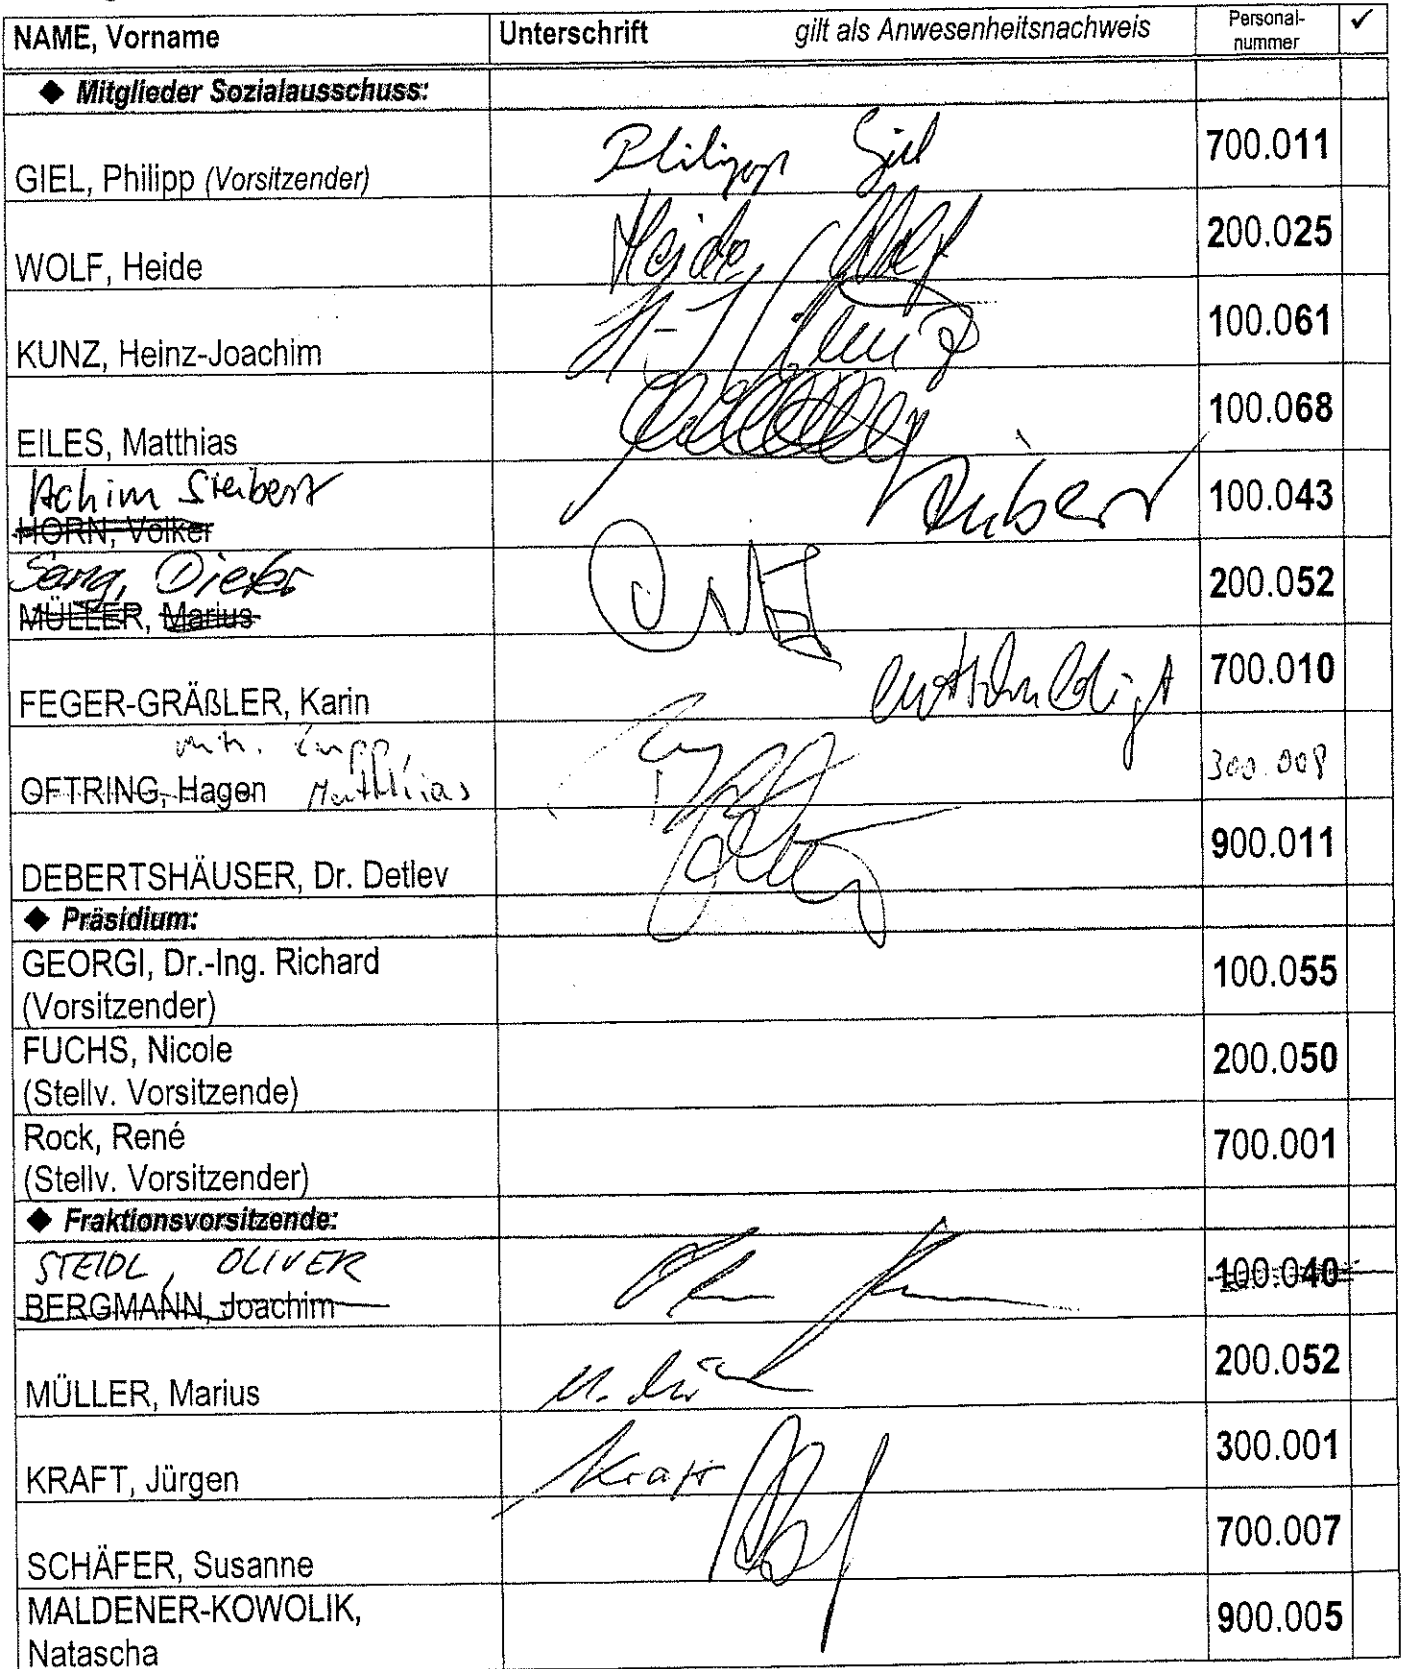 NAME, Vorname Unterschrift gilt als Anwesenheitsnachweis Personal-nummer ✓
◆ Mitglieder Sozialausschuss:
GIEL, Philipp (Vorsitzender) Philipp Giel 700.011
WOLF, Heide Heide Wolf 200.025
KUNZ, Heinz-Joachim H-J Kunz 100.061
EILES, Matthias 100.068
Achim Siebert
HORN, Volker Siebert 100.043
Sang, Dieter
MÜLLER, Marius 200.052
FEGER-GRÄßLER, Karin entschuldigt 700.010
OFTRING, Hagen Matthias 300.008
DEBERTSHÄUSER, Dr. Detlev 900.011
◆ Präsidium:
GEORGI, Dr.-Ing. Richard
(Vorsitzender) 100.055
FUCHS, Nicole
(Stellv. Vorsitzende) 200.050
Rock, René
(Stellv. Vorsitzender) 700.001
◆ Fraktionsvorsitzende:
STEIDL, OLIVER
BERGMANN, Joachim 100.040
MÜLLER, Marius 200.052
KRAFT, Jürgen Kraft 300.001
SCHÄFER, Susanne 700.007
MALDENER-KOWOLIK,
Natascha 900.005